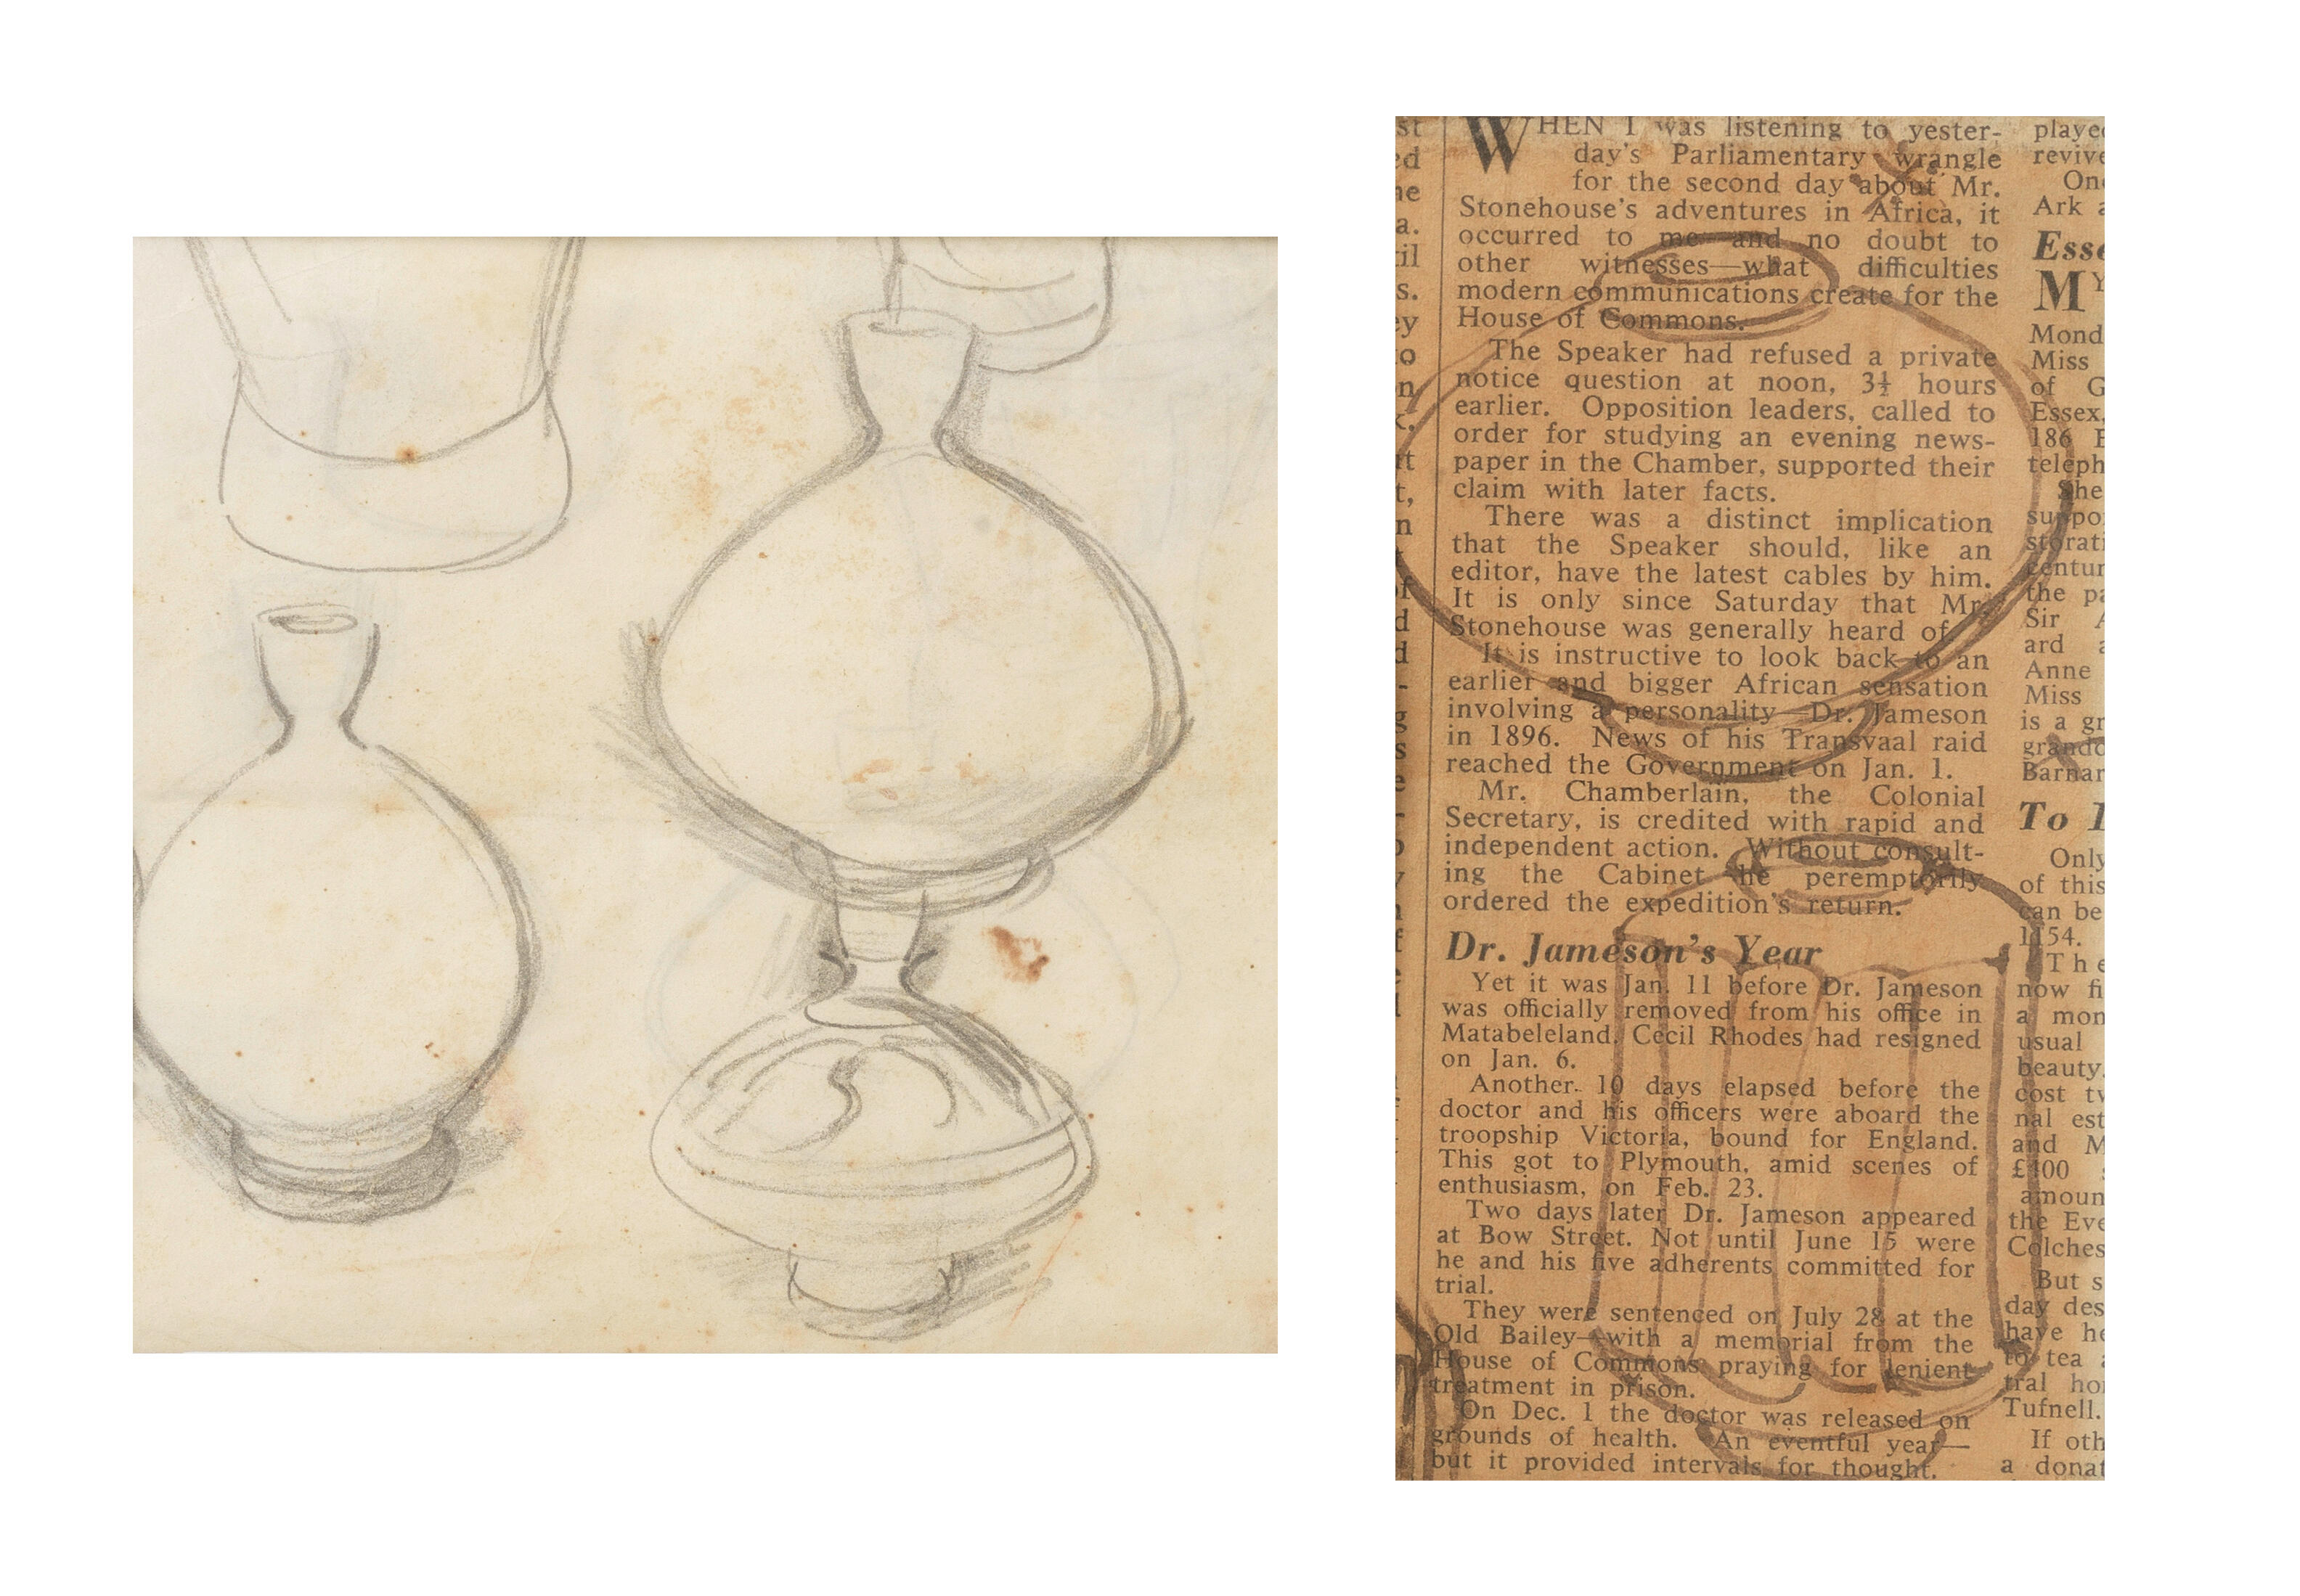 WHEN I was listening to yester-
day's Parliamentary wrangle
for the second day about Mr.
Stonehouse's adventures in Africa, it
occurred to me and no doubt to
other witnesses—what difficulties
modern communications create for the
House of Commons.
The Speaker had refused a private
notice question at noon, 3½ hours
earlier. Opposition leaders, called to
order for studying an evening news-
paper in the Chamber, supported their
claim with later facts.
There was a distinct implication
that the Speaker should, like an
editor, have the latest cables by him.
It is only since Saturday that Mr.
Stonehouse was generally heard of.
It is instructive to look back to an
earlier and bigger African sensation
involving a personality—Dr. Jameson
in 1896. News of his Transvaal raid
reached the Government on Jan. 1.
Mr. Chamberlain, the Colonial
Secretary, is credited with rapid and
independent action. Without consult-
ing the Cabinet he peremptorily
ordered the expedition's return.
Dr. Jameson's Year
Yet it was Jan. 11 before Dr. Jameson
was officially removed from his office in
Matabeleland. Cecil Rhodes had resigned
on Jan. 6.
Another 10 days elapsed before the
doctor and his officers were aboard the
troopship Victoria, bound for England.
This got to Plymouth, amid scenes of
enthusiasm, on Feb. 23.
Two days later Dr. Jameson appeared
at Bow Street. Not until June 15 were
he and his five adherents committed for
trial.
They were sentenced on July 28 at the
Old Bailey—with a memorial from the
House of Commons praying for lenient
treatment in prison.
On Dec. 1 the doctor was released on
grounds of health. An eventful year—
but it provided intervals for thought.
playe
revive
On
Ark a
Esse
MY
Mond
Miss
of G
Essex,
186 E
teleph
She
suppo
storati
centur
the pa
Sir A
ard a
Anne
Miss
is a gr
grandd
Barnar
To
Only
of this
can be
1154.
The
now fi
a mon
usual
beauty.
cost tw
nal est
and M
£400
amoun
the Eve
Colches
But s
day des
have he
to tea a
tral ho
Tufnell.
If oth
a donat